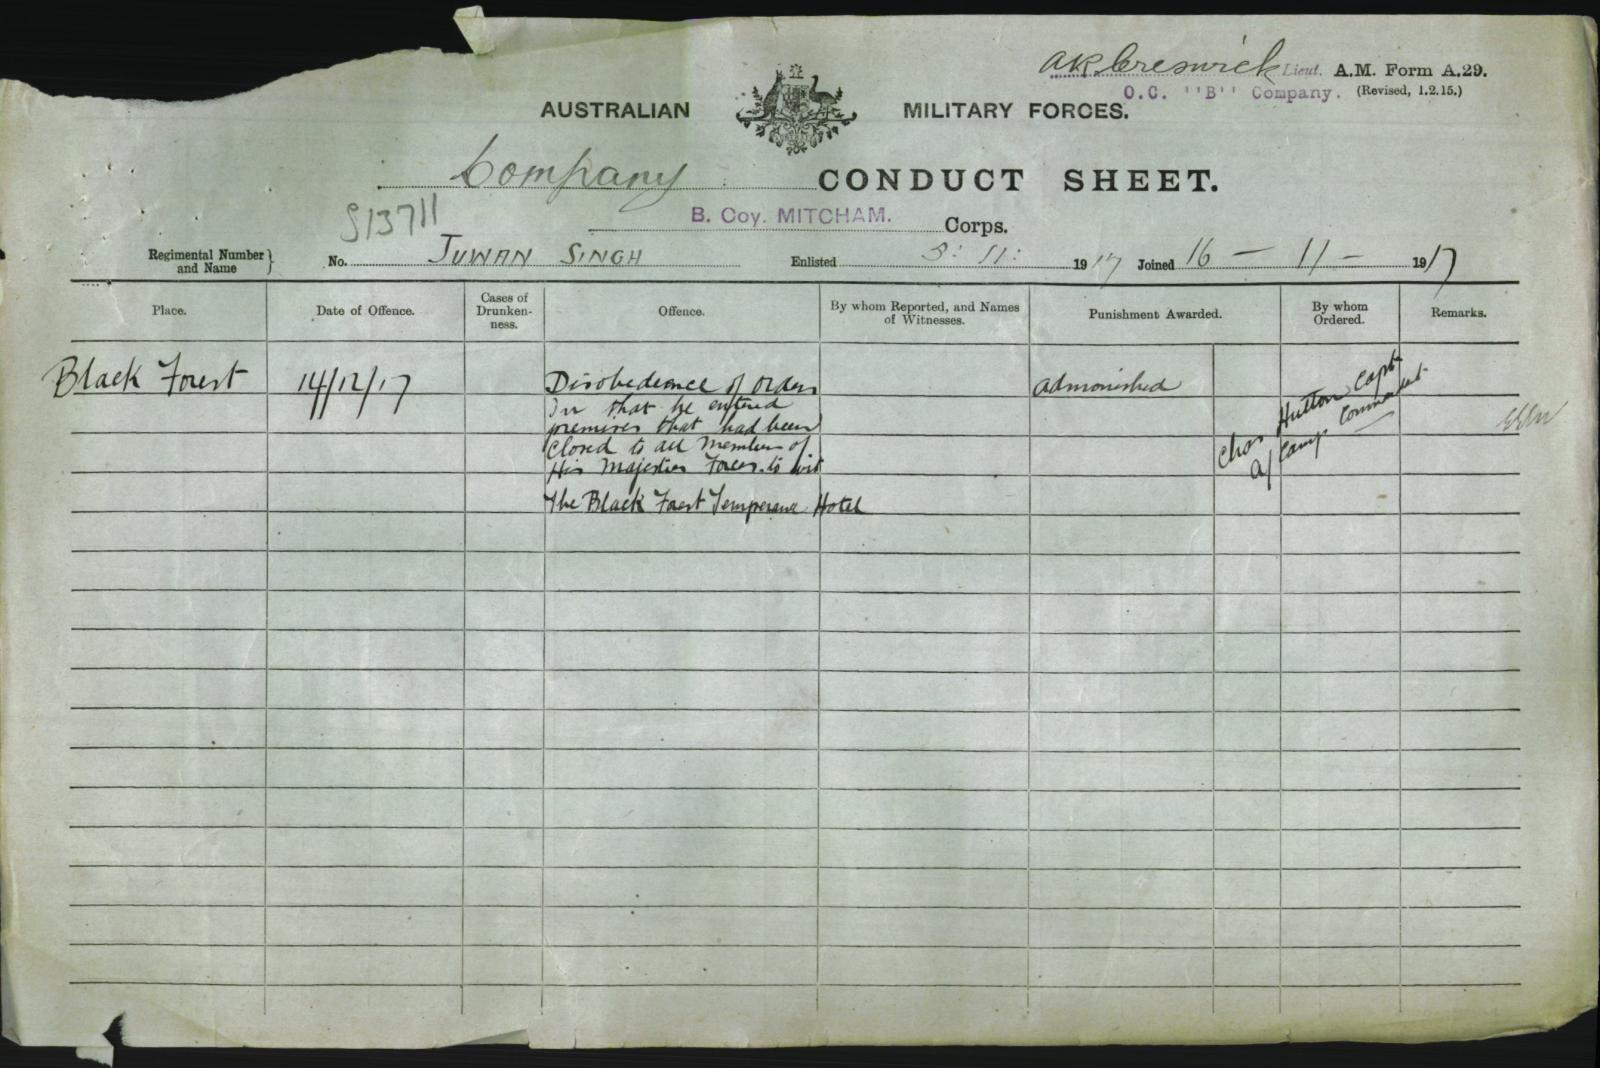 AKCreswick Lieut. A.M. Form A.29.
O.C. "B" Company. (Revised, 1.2.15.)
AUSTRALIAN MILITARY FORCES.
Company CONDUCT SHEET.
S13711
B. Coy. MITCHAM. Corps.
Regimental Number and Name } No. JUWAN SINGH Enlisted 3: 11: 1917 Joined 16 - 11 - 1917
Place. Date of Offence. Cases of Drunken-ness. Offence. By whom Reported, and Names of Witnesses. Punishment Awarded. By whom Ordered. Remarks.
Black Forest 14/12/17 Disobedience of Orders admonished Chas Hutton Capt
In that he entered A/ Camp Commandat
premises that had been
Closed to all Members of
His Majesties Forces. to wit
The Black Forest Temperance Hotel